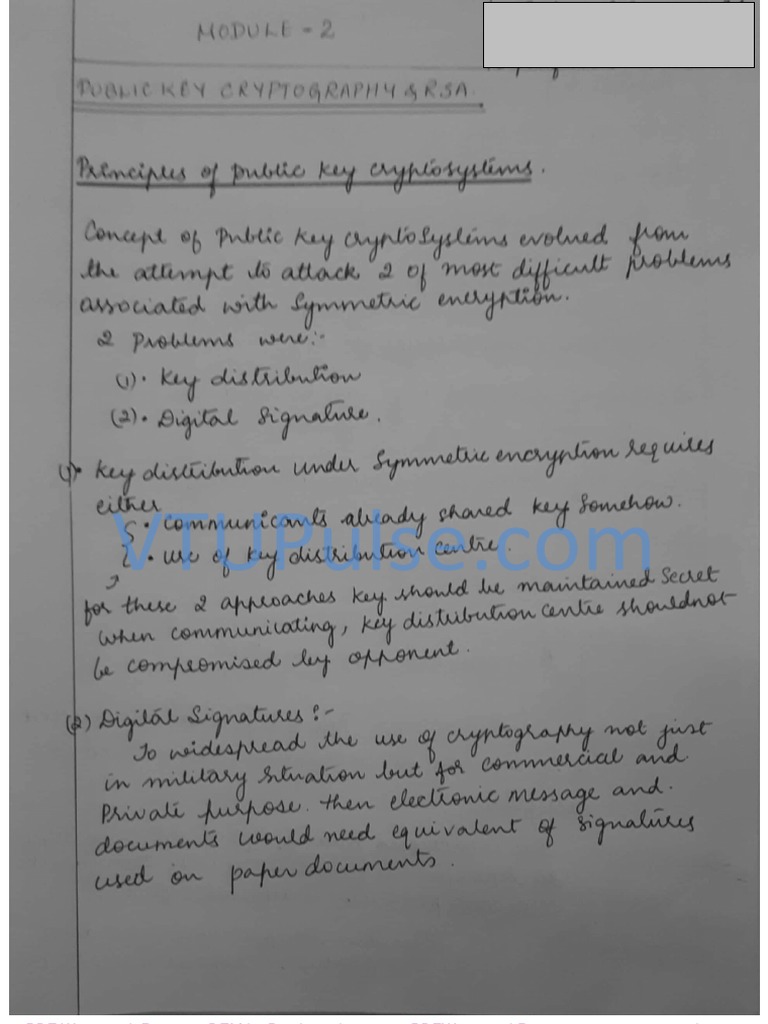 MODULE - 2
PUBLIC KEY CRYPTOGRAPHY & RSA
Principles of public key cryptosystems.
Concept of Public key cryptosystems evolved from
the attempt to attack 2 of most difficult problems
associated with Symmetric encryption.
2 Problems were:-
(1)· Key distribution
(2)· Digital Signature.
(1)· Key distribution under Symmetric encryption requires
either
· communicants already shared key Somehow.
· use of key distribution centre.
for these 2 approaches key should be maintained Secret
when communicating, key distribution centre shouldnot
be compromised by opponent.
(2) Digital Signatures :-
To widespread the use of cryptography not just
in military situation but for commercial and
Private purpose. then electronic message and
documents would need equivalent of signatures
used on paper documents.
VTUPulse.com